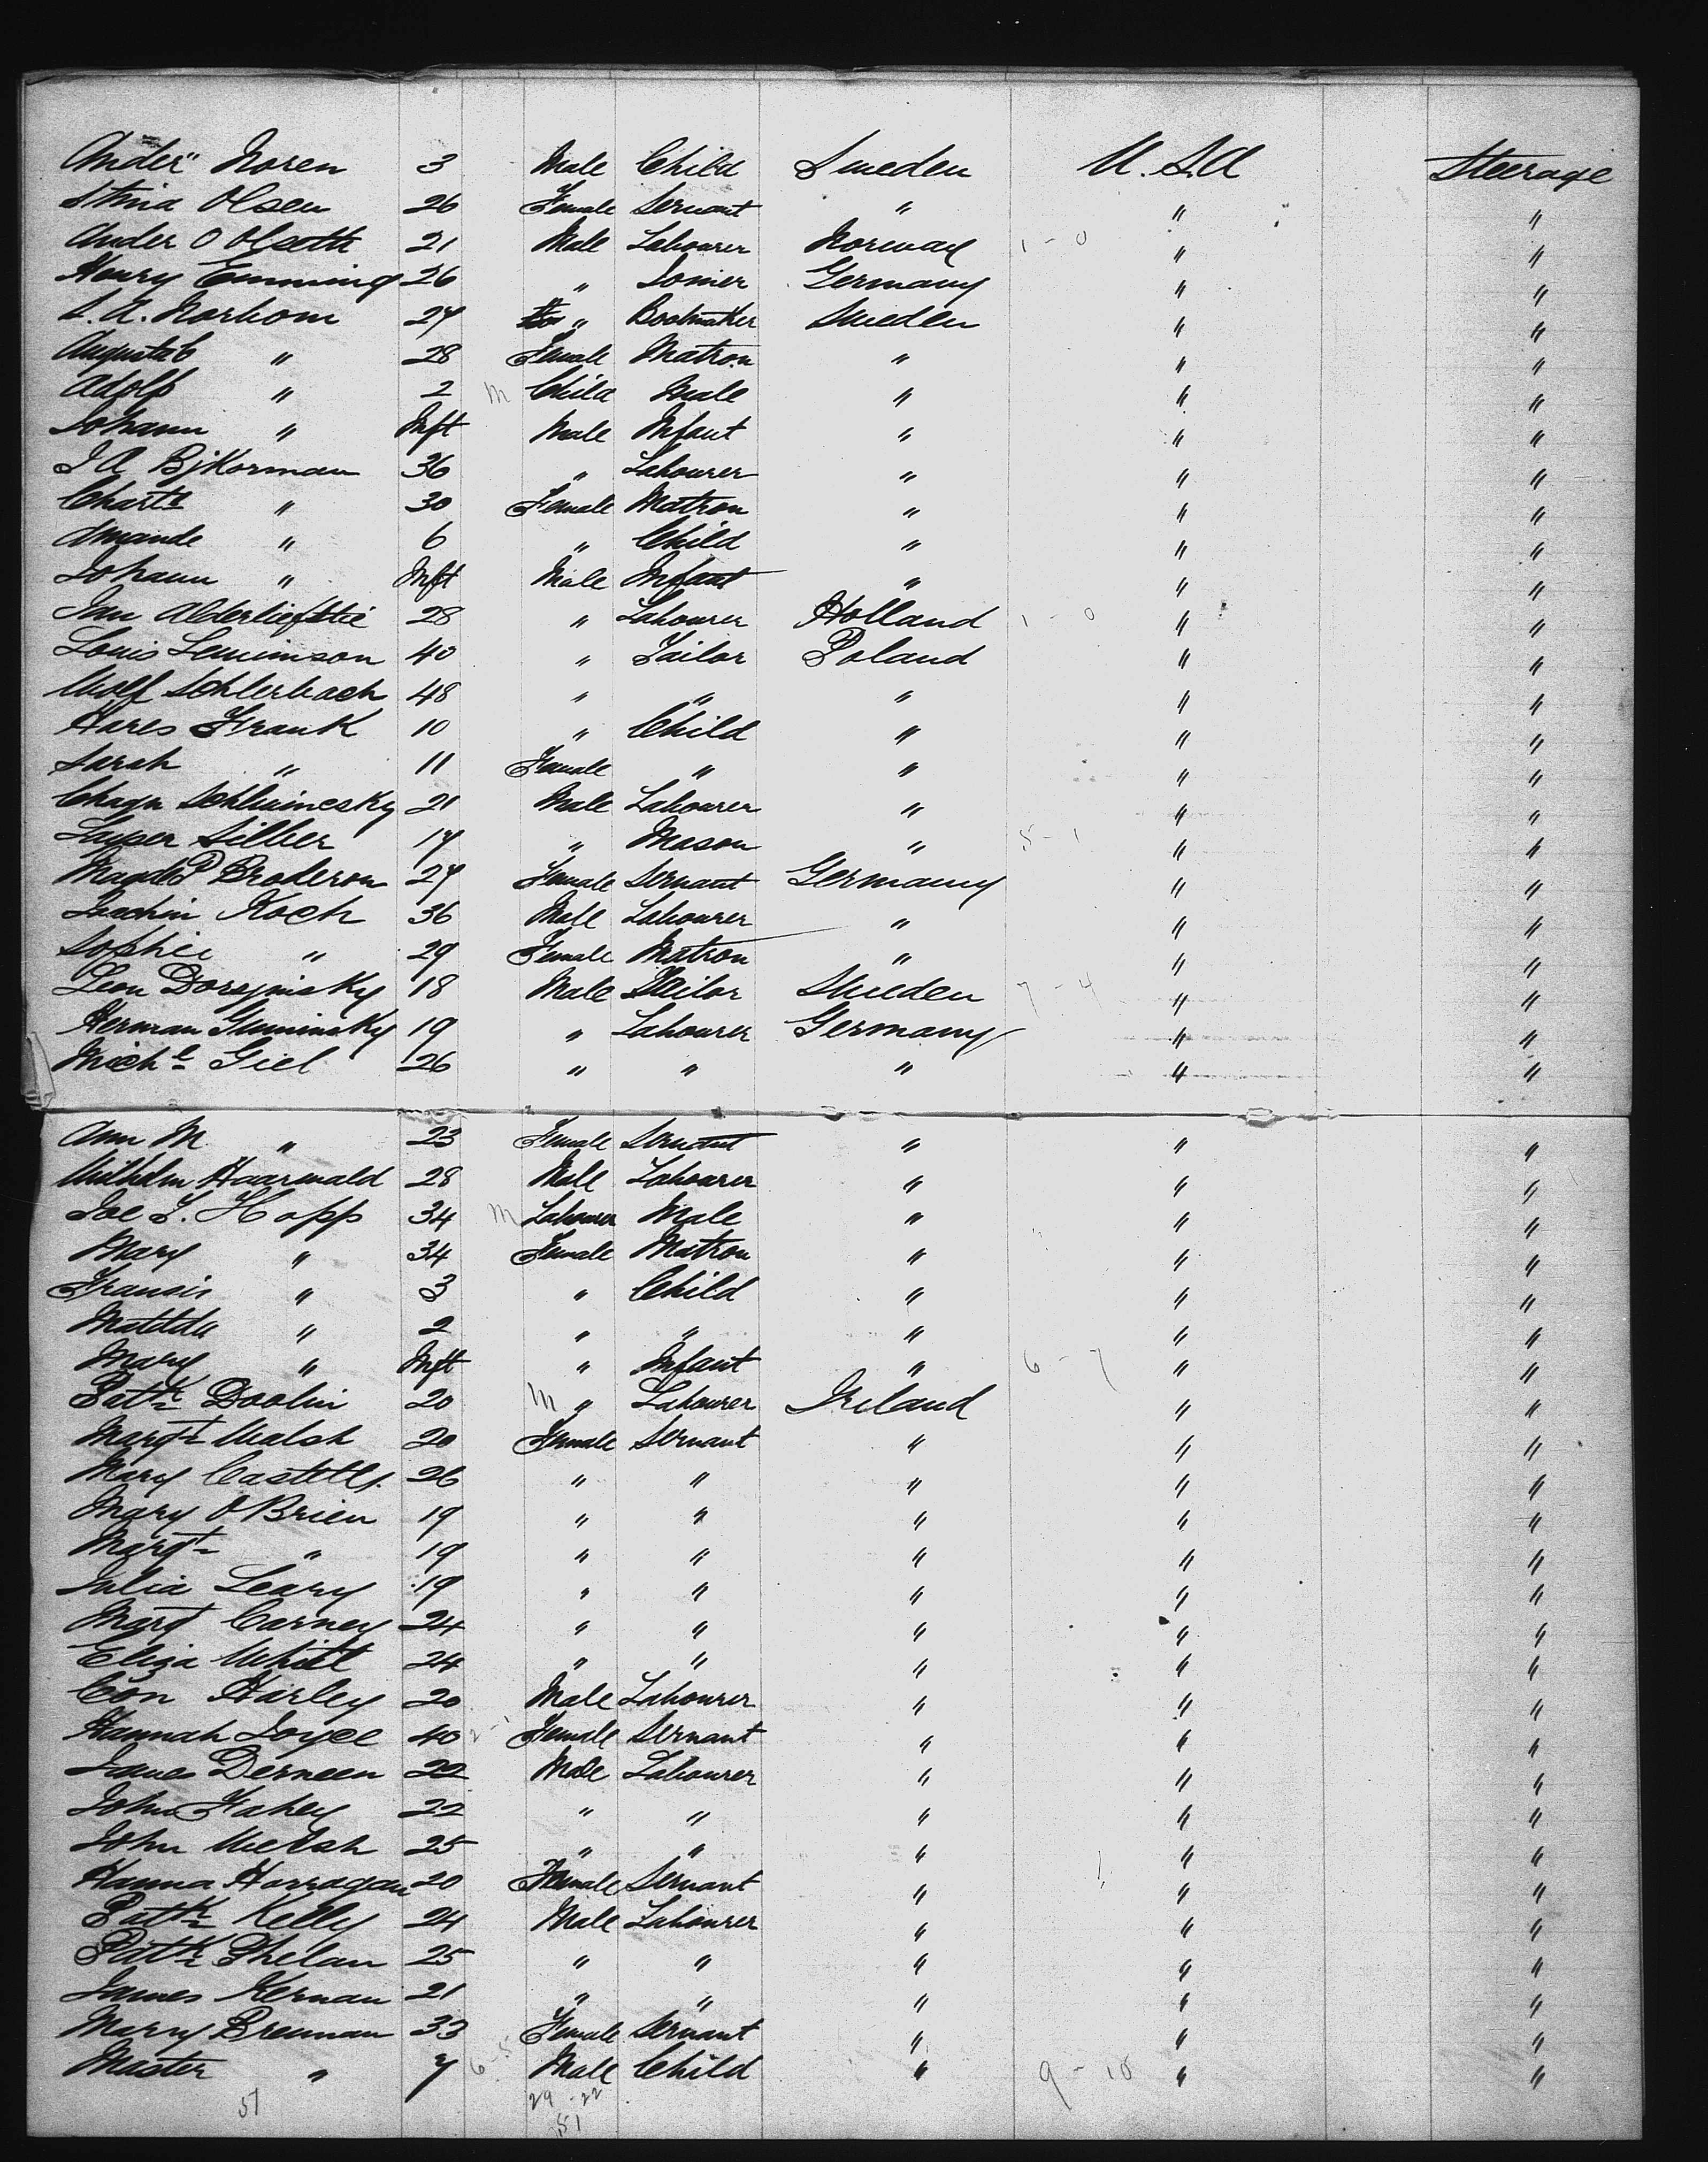 Ander" Noren 3 Male Child Sweden U.S.A Steerage
Stina Olsen 26 Female Servant " " "
Ander O Olseth 21 Male Labourer Norway 1 - 0 " "
Henry Emming 26 " Joiner Germany " "
S.A. Norbom 27 " Bootmaker Sweden " "
Augusta C " 28 Female Matron " " "
Adolf " 2 m Child Male " " "
Johann " Inft Male Infant " " "
J A Bjkorman 36 " Labourer " " "
Chartte " 30 Female Matron " " "
Amande " 6 " Child " " "
Johann " Inft Male Infant " " "
Jan Alderliefstie 28 " Labourer Holland 1 - 0 " "
Louis Lewimson 40 " Tailor Poland " "
Wolf Schlerbach 48 " " " " "
Hares Frank 10 " Child " " "
Sarah " 11 Female " " " "
Chaya Schluinesky 21 Male Labourer " " "
Layser Silber 17 " Mason " 5 - 1 " "
Broderson 27 Female Servant Germany " "
Jochim Koch 36 Male Labourer " " "
Sophie " 29 Female Matron " " "
Leon 18 Male Tailor Sweden 7 - 4 " "
Herman Guminsky 19 " Labourer Germany " "
Miche Giel 26 " " " " "
Ann M " 23 Female Servant " " "
Wilhelm Haarwald 28 Male Labourer " " "
Joe F. Happ 34 m Labourer Male " " "
Mary " 34 Female Matron " " "
Francis " 3 " Child " " "
Matilda " 2 " " " " "
Mary " Inft " Infant " 6 - 7 " "
Patk Doolin 20 m " Labourer Ireland " "
Margt Walsh 20 Female Servant " " "
Mary Castells 26 " " " " "
Mary O'Brien 19 " " " " "
Margt " 19 " " " " "
Julia Leary 19 " " " " "
Margt Carney 24 " " " " "
Eliza White 24 " " " " "
Con Harley 20 Male Labourer " " "
Hannah Joyce 40 2 - 1 Female Servant " " "
James Derneen 22 Male Labourer " " "
John Fahey 22 " " " " "
John Welsh 25 " " " " "
Hanna Horragan 20 Female Servant " " "
Patk Kelly 24 Male Labourer " " "
Patk Phelan 25 " " " " "
James Kernan 21 " " " " "
Mary Brennan 33 Female Servant " " "
Master " 7 6 - 5 Male Child " 9 - 10 " "
51 29 - 22
51